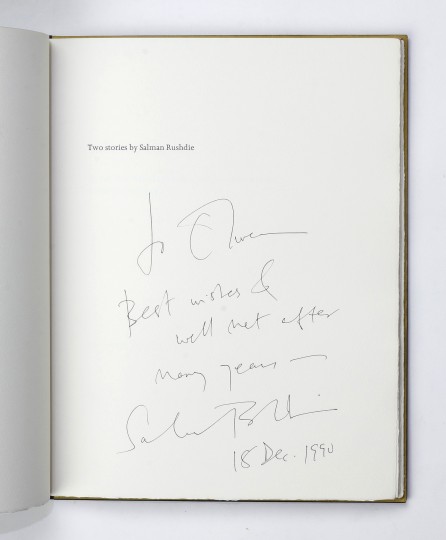 Two stories by Salman Rushdie
To
Best wishes &
well met after
many years —
Salman Rushdie
18 Dec. 1990